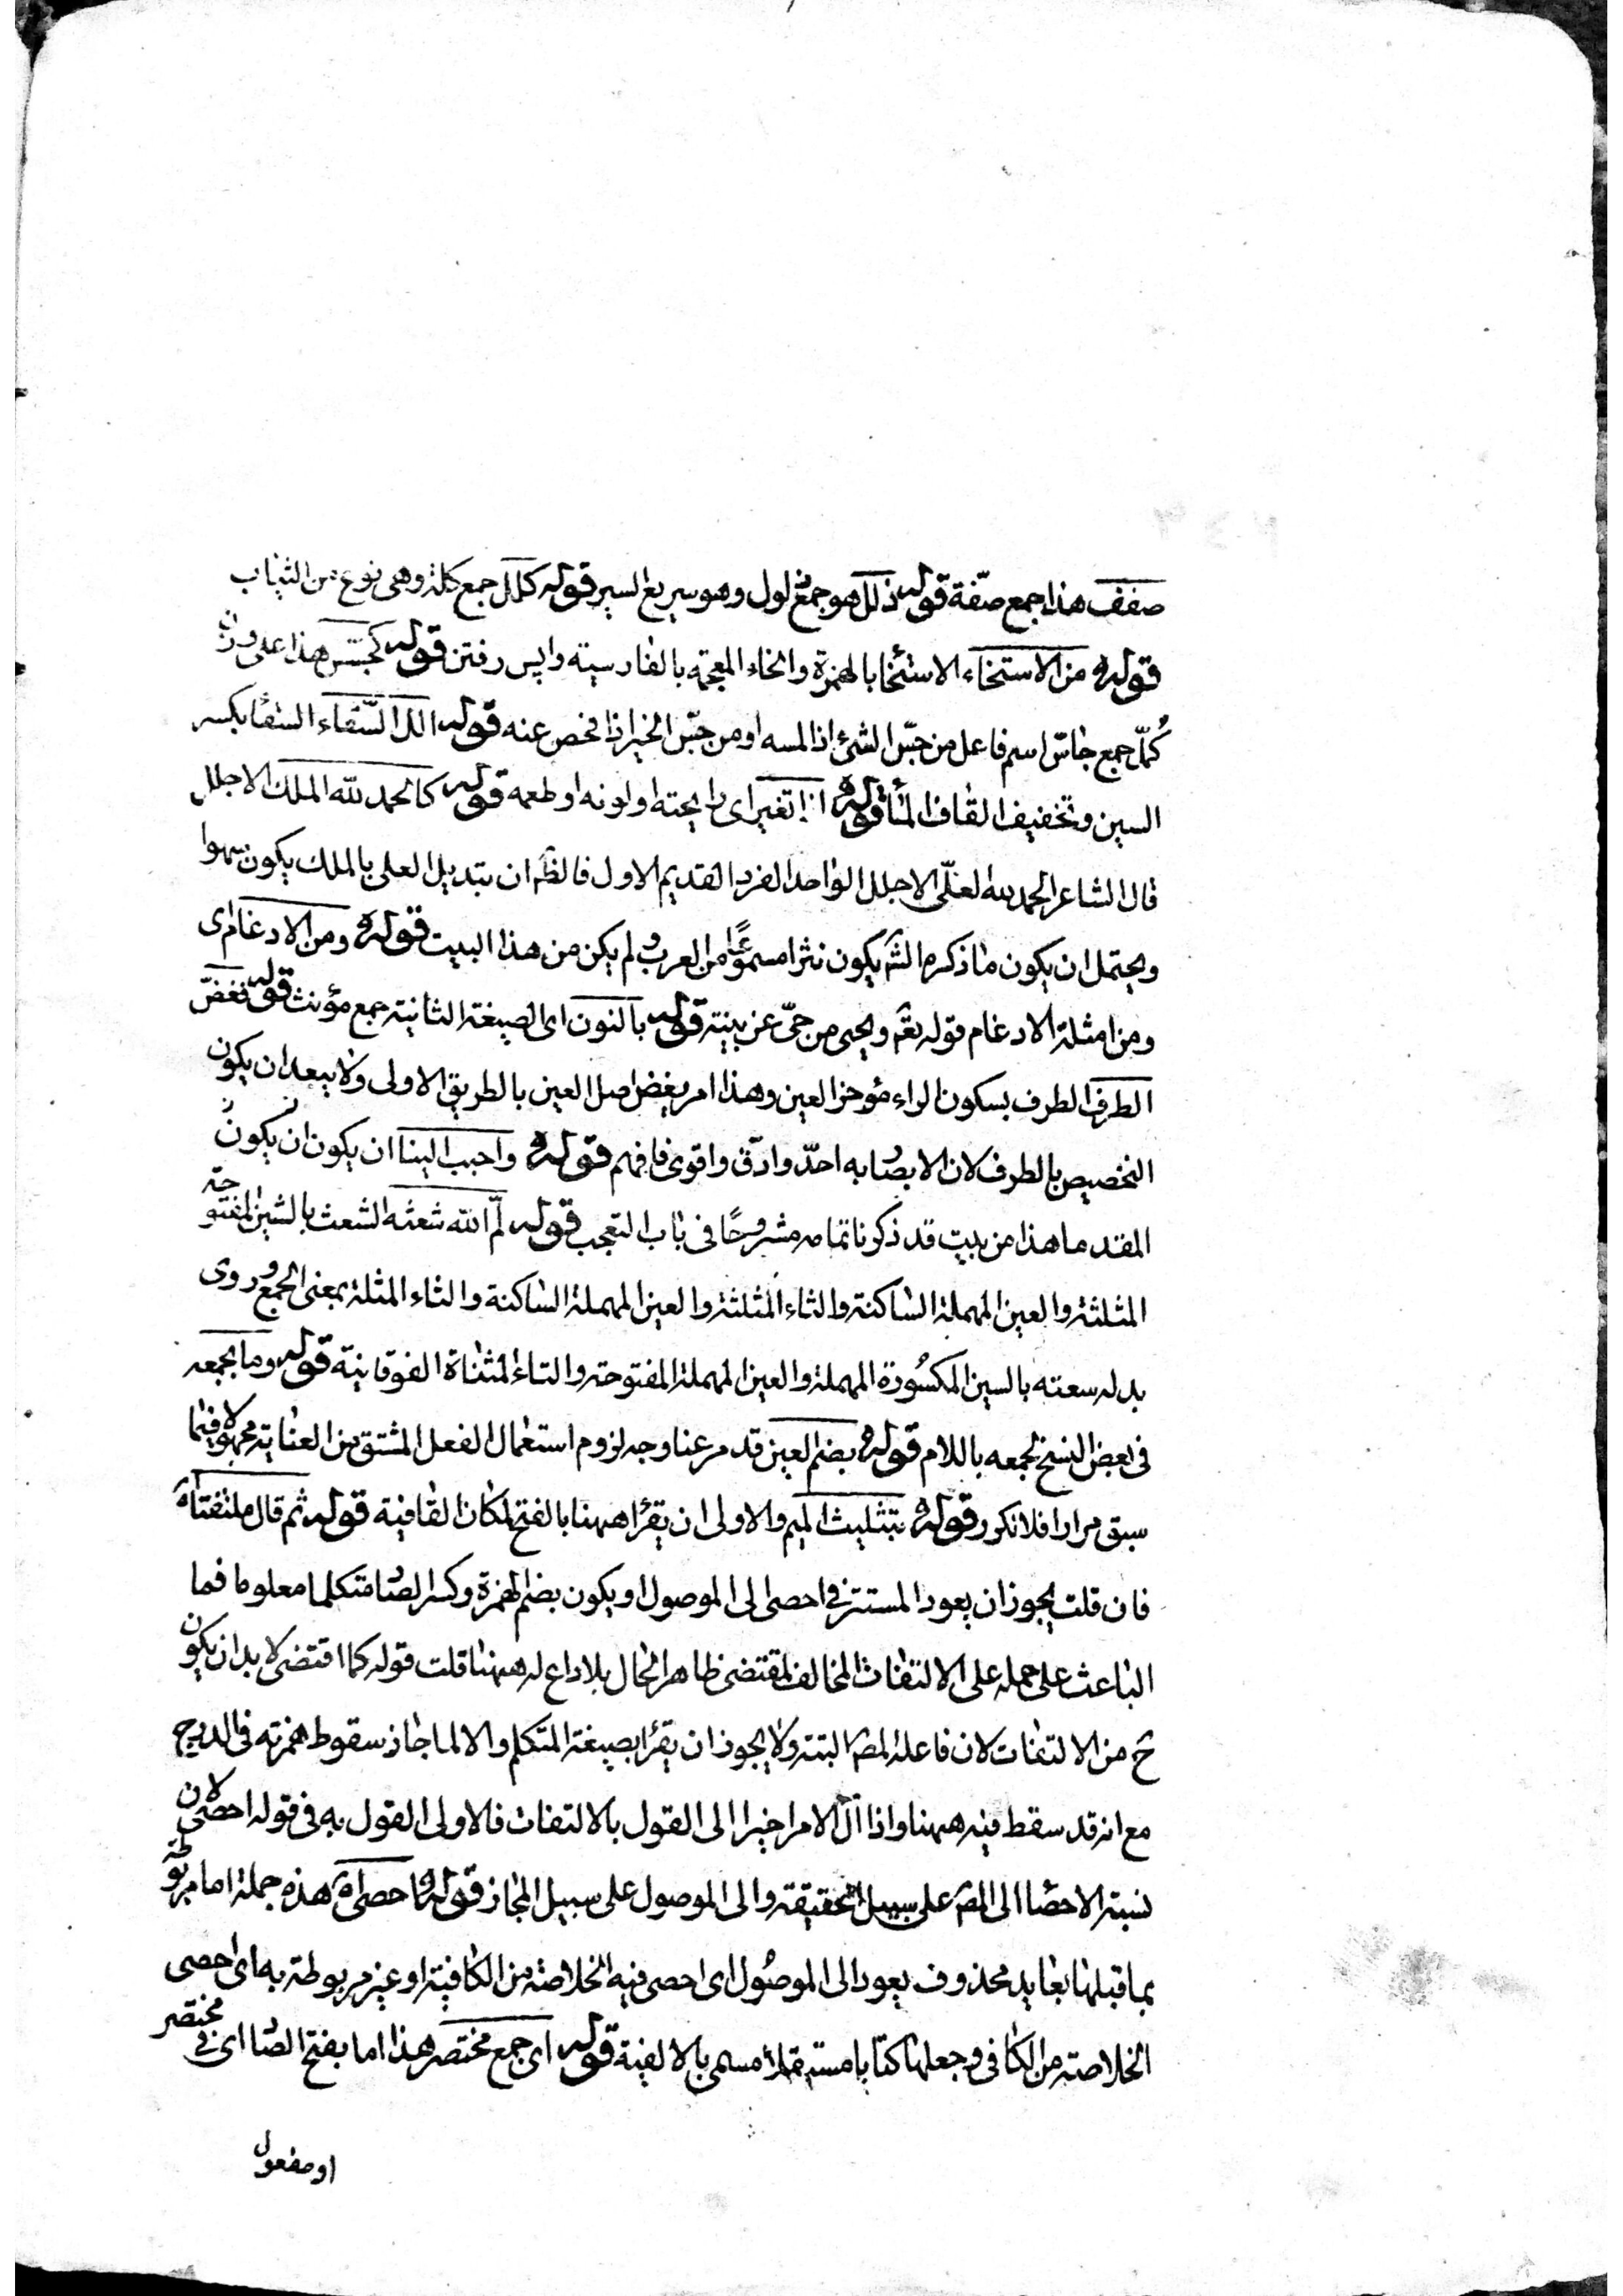 صفف هذا جمع صفّة قوله ذلل هو جمع ذلول وهو سريع السير قوله كلل جمع كلة وهى نوع من الثياب
قوله من الاستخاء الاستخا بالهمزة والخاء المعجمة بالفارسية واپس رفتن قوله كجسّس هذا على وزن
كُمّل جمع جاسّ اسم فاعل من جسّ الشئ اذا لمسه او من جسّ الخبر اذا فحص عنه قوله الل السّقاء السقا بكسر
السين وتخفيف القاف قوله اذا تغير اى رايحته او لونه او طعمه قوله كالحمد لله الملك الاجلل
قال الشاعر الحمد لله العلّى الاجلل الواحد الفرد القديم الاول فالظ ان تبديل العلى بالملك يكون سهوا
ويحتمل ان يكون ما ذكره الش يكون نثرا مسموعًا من العرب ولم يكن من هذا البيت قوله ومن الادغام اى
ومن امثلة الادغام قوله تع ويحيى من حىّ عن بينة قوله بالنون اى الصيغة الثانية جمع مؤنث قوله فغضّ
الطرف الطرف بسكون الراء مؤخر العين وهذا امر بغض اصل العين بالطريق الاولى ولا يبعد ان يكون
التخصيص بالطرف لان الابصار به احدّ وادقّ واقوى فافهم قوله واحبب الينا ان يكون ان يكون
المقدما هذا من بيت قد ذكرنا تمامه مشروحًا فى باب التعجب قوله لمّ الله شعثه الشعث بالشين المفتوحة
المثلثة والعين المهملة الساكنة والثاء المثلثة والعين المهملة الساكنة والثاء المثلة بمعنى الجمع وروى
بدله سعته بالسين المكسُورة المهملة والعين المهملة المفتوحة والتاء المثناة الفوقانية قوله وما بجمعه
فى بعض النسخ لجمعه باللام قوله بضم العين قد مر عنا وجه لزوم استعمال الفعل المشتق من العناية مجهولا فيما
سبق مرارا فلا نكرر قوله بتثليث الميم والاولى ان يقرأ ههنا بالفتح لمكان القافية قوله ثم قال ملتفتا
فان قلت يجوز ان يعود المستتر فى احصى الى الموصول او يكون بضم الهمزة وكسر الصاد متكلما معلوما فما
الباعث على حمله على الالتفات المخالف لمقتضى ظاهر الحال بلا داع له ههنا قلت قوله كما اقتضى لا بد ان يكون
ح من الالتفات لان فاعله المص البتة ولا يجوز ان يقرأ بصيغة المتكلم والا لما جاز سقوط همزته فى الدرج
مع انه قد سقط فيه ههنا واذا آل الامر اخيرا الى القول بالالتفات فالاولى القول به فى قوله احصى لان
نسبة الاحصا الى المص على سبيل الحقيقة والى الموصول على سبيل المجاز قوله احصى اه هذه جملة اما مربوطة
بما قبلها بعايد محذوف يعود الى الموصُول اى احصى فيه الخلاصة من الكافية او غير مربوطة به اى احصى
الخلاصة من الكافى وجعلها كتابا مستقلا مسمى بالالفية قوله اى جمع مختصر هذا اما بفتح الصاد اى فى مختصر
او مفعول